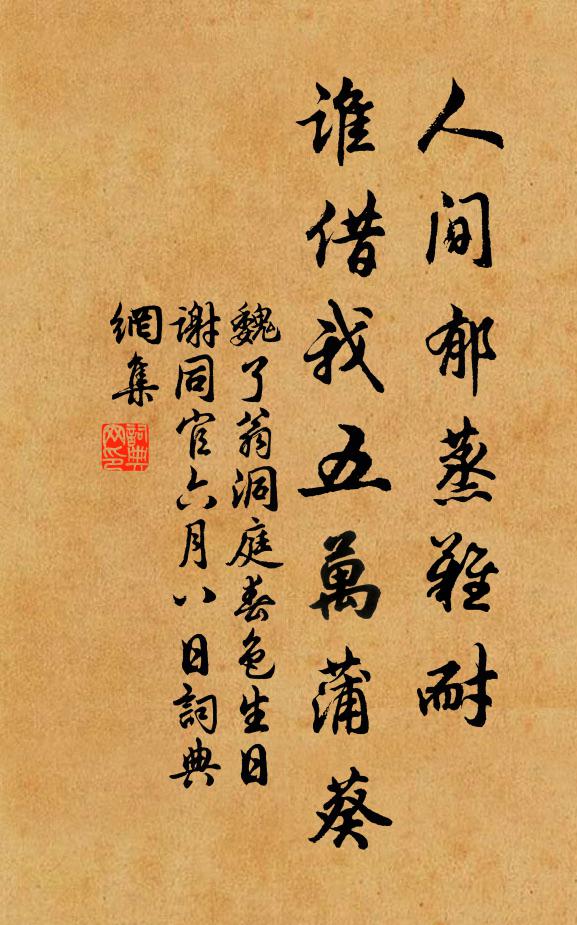 人间郁蒸難耐
谁借我五萬蒲葵
魏了翁洞庭春色生日
谢同官六月八日詞典
網集
詞典
网印